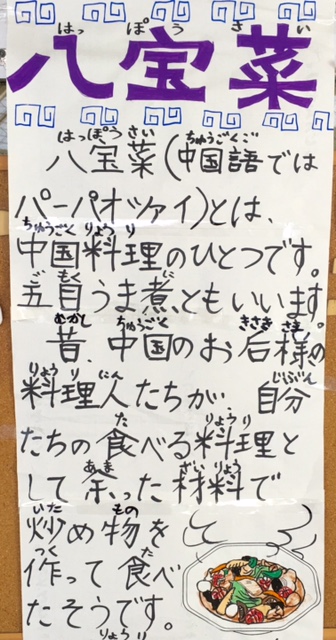 はっ ぽう さい
八宝菜
はっぽう さい ちゅうごくご
八宝菜(中国語では
パーパオツァイ)とは、
ちゅうごく りょう り
中国料理のひとつです。
ご もく に
五目うま煮ともいいます。
むかし ちゅうごく きさき さま
昔、中国のお后様の
りょう り にん じぶん
料理人たちが、自分
た りょう り
たちの食べる料理と
あま ざい りょう
して余った材料で
いた もの
炒め物を
つく た
作って食べ
たそうです。
りょう り